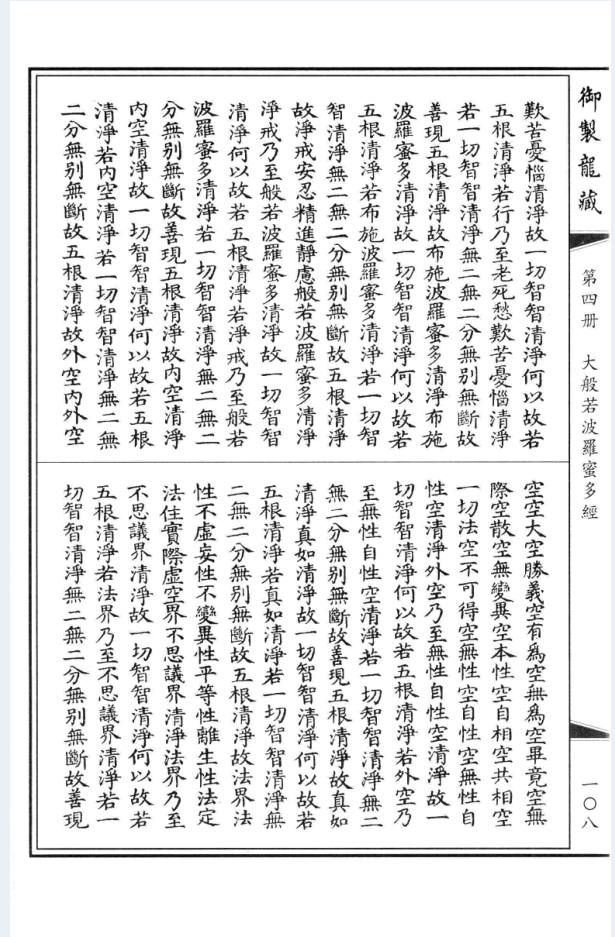 御製龍藏
第四册　大般若波羅蜜多經
一〇八
歎苦憂惱清淨故一切智智清淨何以故若
五根清淨若行乃至老死愁歎苦憂惱清淨
若一切智智清淨無二無二分無別無斷故
善現五根清淨故布施波羅蜜多清淨布施
波羅蜜多清淨故一切智智清淨何以故若
五根清淨若布施波羅蜜多清淨若一切智
智清淨無二無二分無別無斷故五根清淨
故淨戒安忍精進靜慮般若波羅蜜多清淨
淨戒乃至般若波羅蜜多清淨故一切智智
清淨何以故若五根清淨若淨戒乃至般若
波羅蜜多清淨若一切智智清淨無二無二
分無別無斷故善現五根清淨故內空清淨
內空清淨故一切智智清淨何以故若五根
清淨若內空清淨若一切智智清淨無二無
二分無別無斷故五根清淨故外空內外空
空空大空勝義空有為空無為空畢竟空無
際空散空無變異空本性空自相空共相空
一切法空不可得空無性空自性空無性自
性空清淨外空乃至無性自性空清淨故一
切智智清淨何以故若五根清淨若外空乃
至無性自性空清淨若一切智智清淨無二
無二分無別無斷故善現五根清淨故真如
清淨真如清淨故一切智智清淨何以故若
五根清淨若真如清淨若一切智智清淨無
二無二分無別無斷故五根清淨故法界法
性不虛妄性不變異性平等性離生性法定
法住實際虛空界不思議界清淨法界乃至
不思議界清淨故一切智智清淨何以故若
五根清淨若法界乃至不思議界清淨若一
切智智清淨無二無二分無別無斷故善現